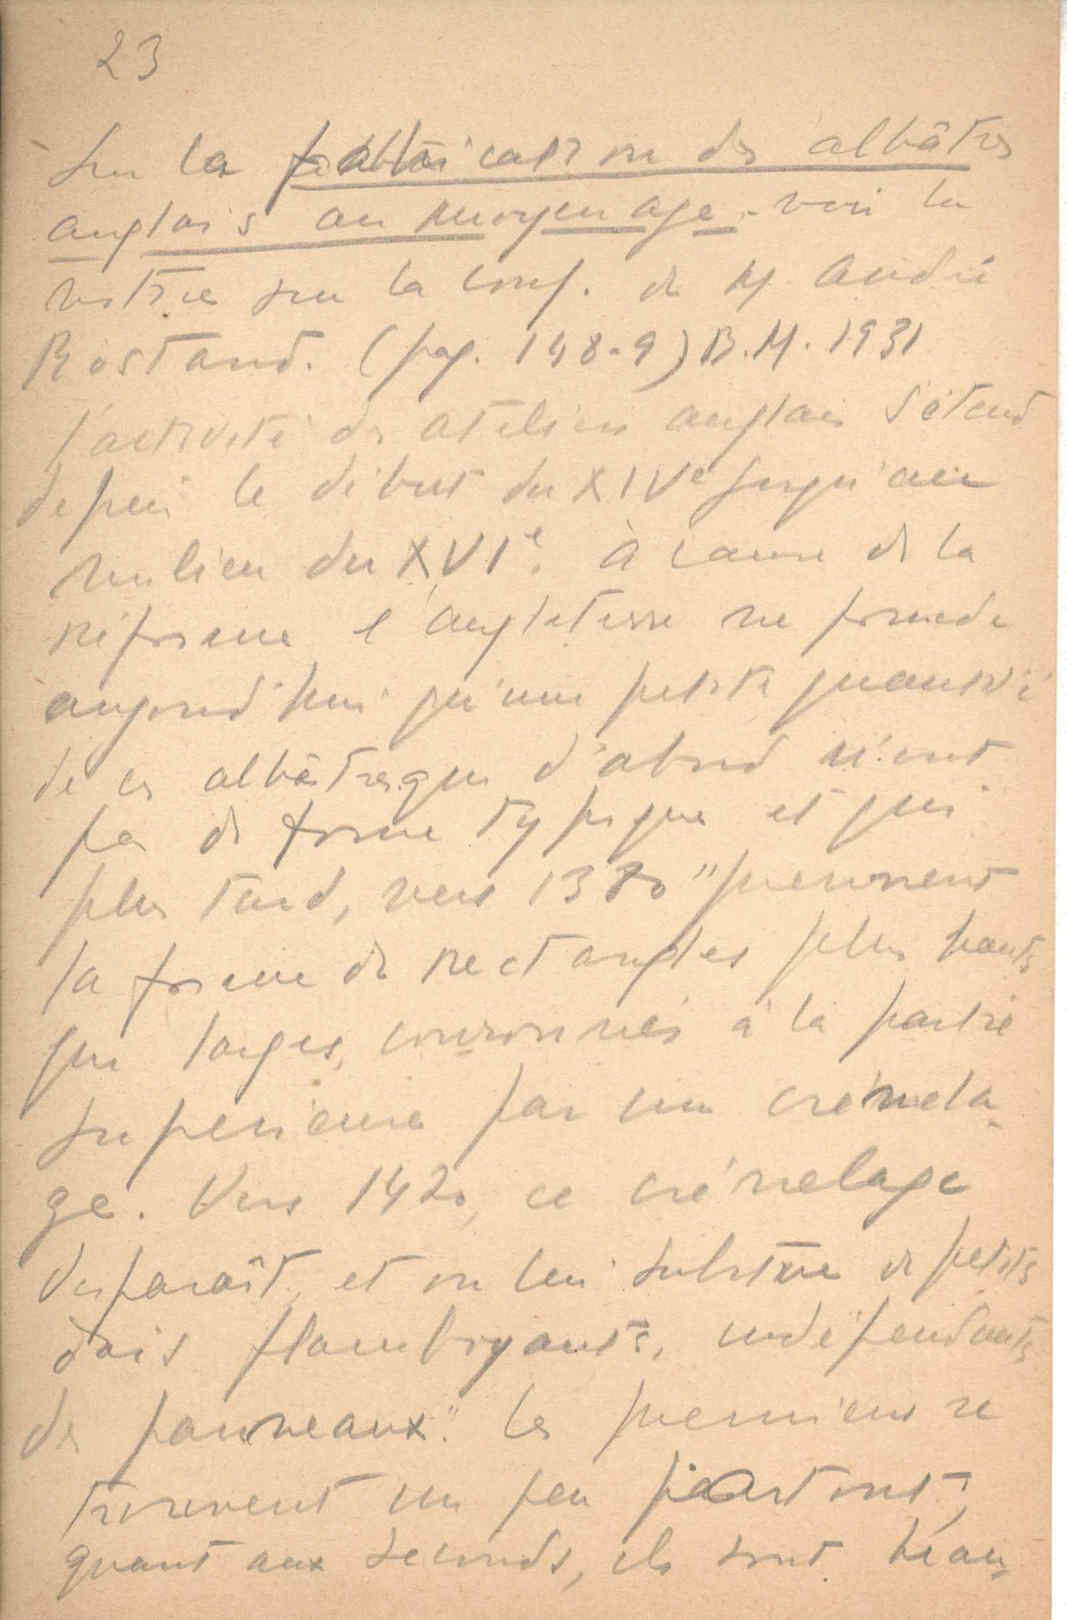 23
Sur la fabrication des albâtres
anglais au moyen age. voir la
notice sur la conf. de M. André
Rostand. (pag. 148-9) B.M. 1931
l'activité des ateliers anglais s'étend
depuis le début du XIVe jusqu'au
milieu du XVIe. à cause de la
réforme l'angleterre ne possède
aujourd'hui qu'une petite quantité
de ces albâtres qui d'abord n'ont
pas de forme typique et qui
plus tard, vers 1380 "prennent
la forme de rectangles plus hauts
que larges, couronnés à la partie
superieure par un crénela-
ge. Vers 1420, ce crénelage
disparaît, et on lui substitue de petits
dais flamboyants, indépendants
des panneaux". les premiers se
trouvent un peu partout,
quant aux seconds, ils sont beau-